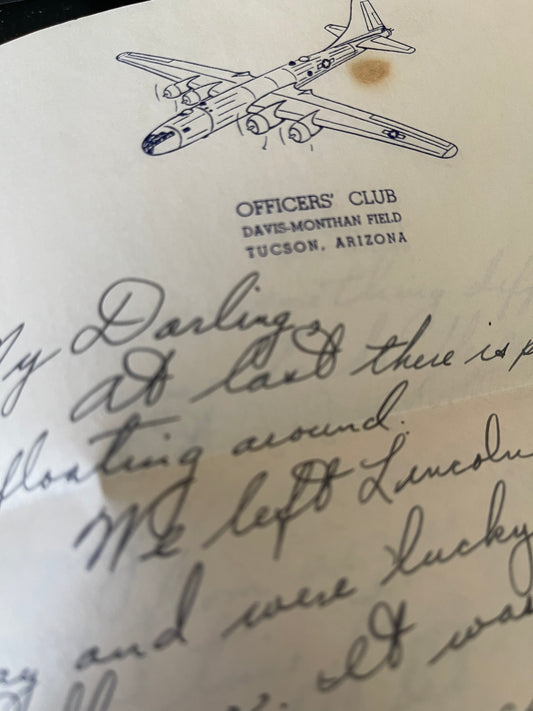 OFFICERS' CLUB
DAVIS-MONTHAN FIELD
TUCSON, ARIZONA
My Darling,
At last there is
floating around.
We left Lincoln
and were lucky
It was